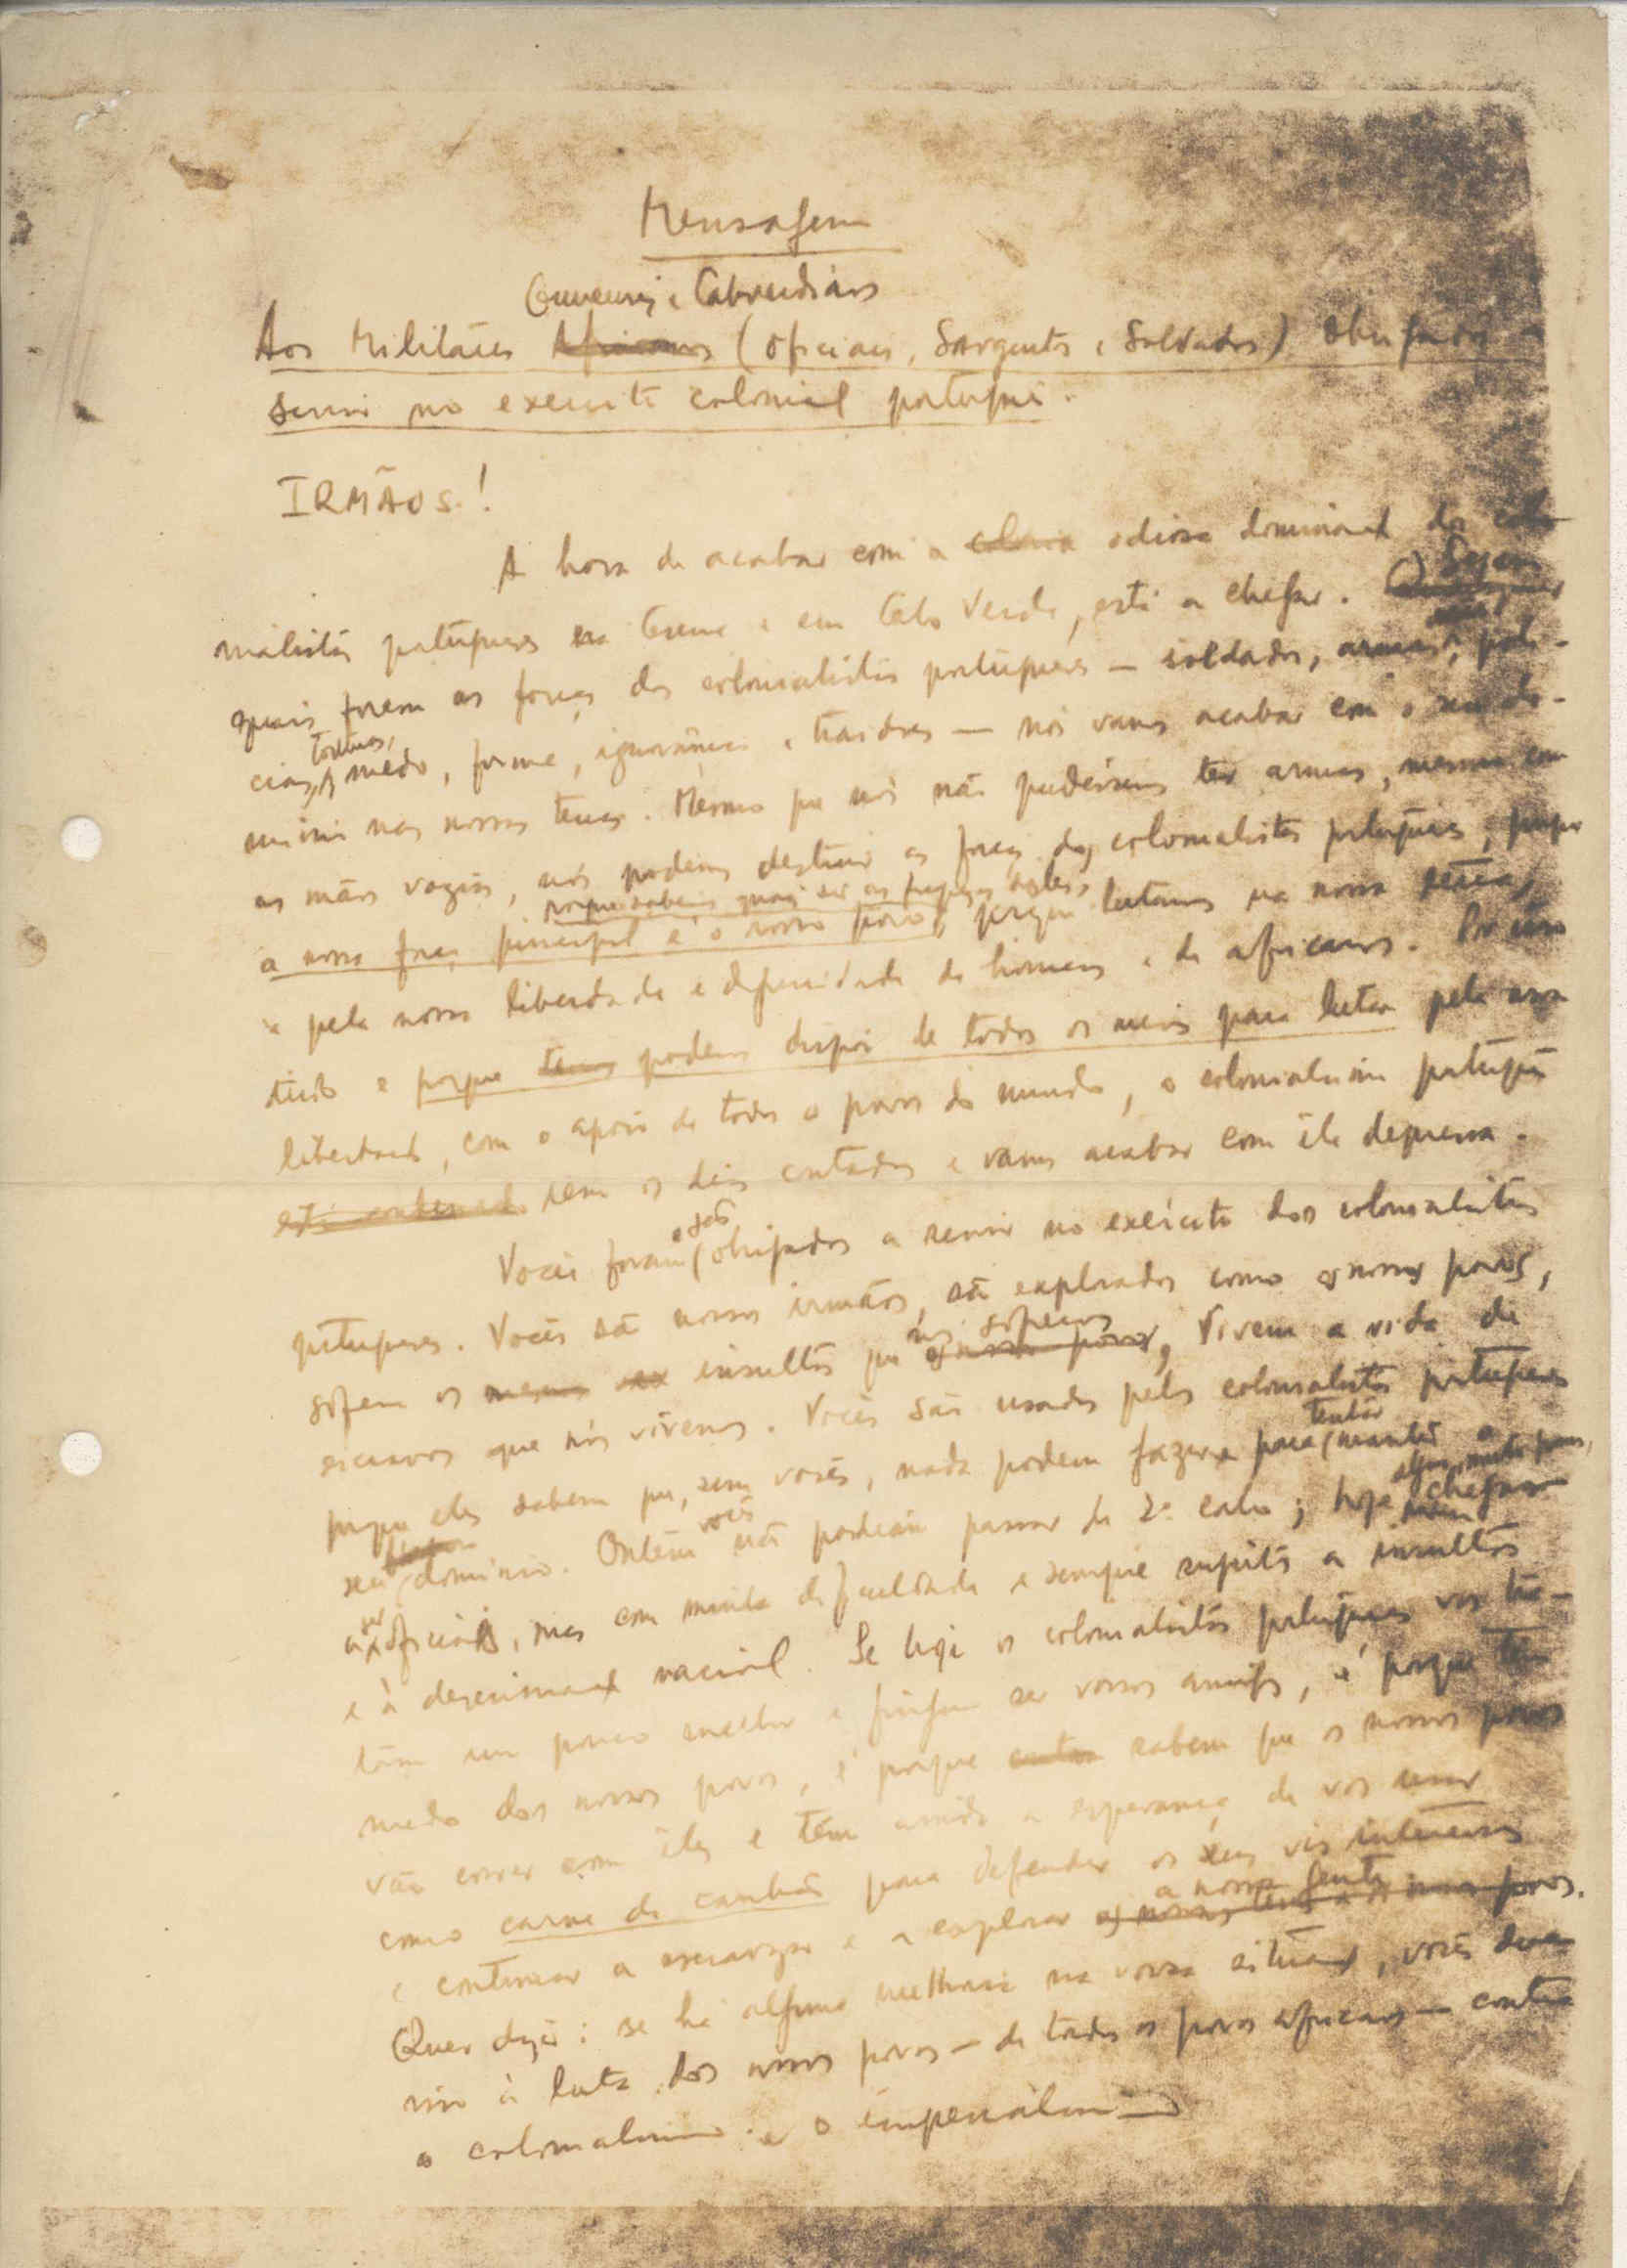 Mensagem
Guineenses e Caboverdianos
Aos Militares Africanos (Oficiais, Sargentos e Soldados) obrigados a
servir no exercito colonial português.
IRMÃOS!
A hora de acabar com a odiosa dominação dos colo-
nialistas portugueses na Guiné e em Cabo Verde, está a chegar. Sejam
quais forem as forças dos colonialistas portugueses — soldados, armas, polí-
torturas,
cias, medo, fome, ignorância e traidores — nós vamos acabar com o seu do-
mínio nas nossas terras. Mesmo que nós não pudéssemos ter armas, mesmo com
as mãos vazias, nós podemos destruir as forças dos colonialistas portugueses, porque
porque sabemos quais são as fraquezas deles,
a nossa força principal é o nosso povo, porque lutamos na nossa terra,
e pela nossa liberdade e dignidade de homens e de africanos. Por isso
tudo e porque temos podemos dispor de todos os meios para lutar pela nossa
liberdade, com o apoio de todos os povos do mundo, o colonialismo português
está condenado tem os dias contados e vamos acabar com êle depressa.
e são
Vocês foram obrigados a servir no exército dos colonialistas
portugueses. Vocês são nossos irmãos, são explorados como os nossos povos,
nós sofremos
sofrem os mesmos insultos que os nossos povos, vivem a vida de
escravos que nós vivemos. Vocês são usados pelos colonialistas portugueses
tentar
porque eles sabem que, sem vocês, nada podem fazer para manter o
alguns, muito poucos,
vocês
seu domínio. Ontem não podiam passar de 2º cabo; hoje chegam
a ser oficiais, mas com muita dificuldade e sempre sujeitos a insultos
e à descriminação racial. Se hoje os colonialistas portugueses vos tra-
tam um pouco melhor e fingem ser vossos amigos, é porque têm
medo dos nossos povos, é porque sabem que os nossos povos
vão correr com êles e têm ainda a esperança de vos usar
como carne de canhão para defender os seus vis interesses
a nossa gente
e continuar a escravizar e a explorar as nossas terras e os nossos povos.
Quer dizer: se há alguma melhoria na vossa situação, vocês devem
isso à luta dos nossos povos — de todos os povos africanos — contra
o colonialismo e o imperialismo